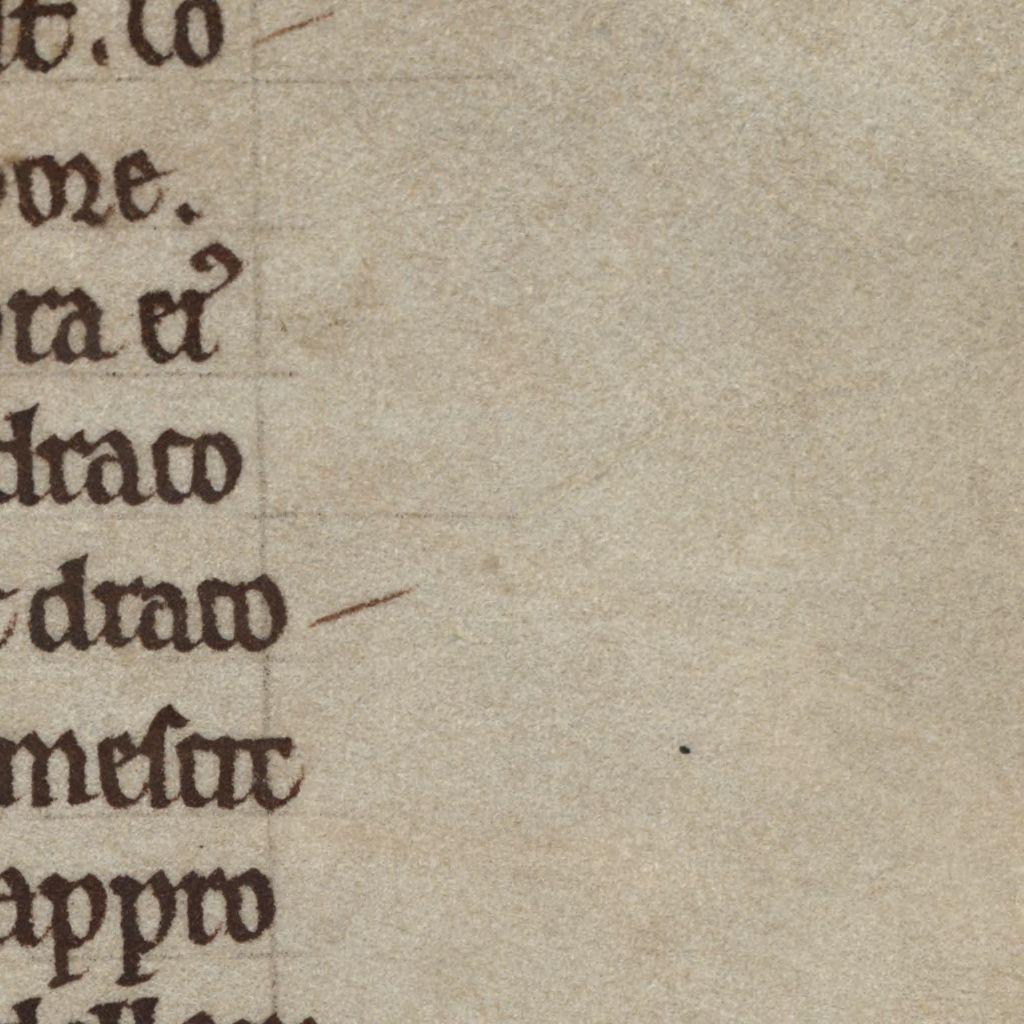 it. Co
ore.
ora ei᾽
draco
draco
mescit
appro